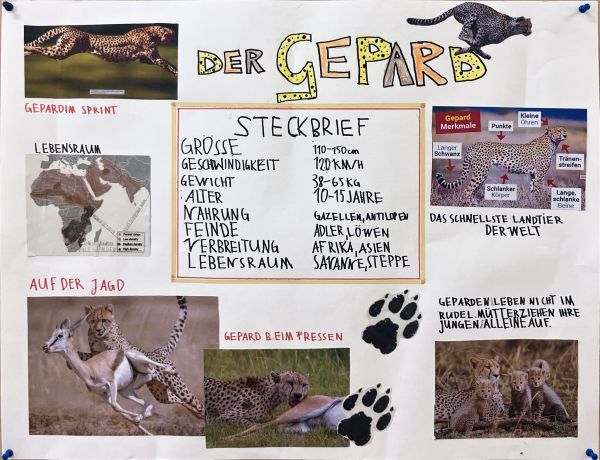 DER GEPARD
GEPARD IM SPRINT
LEBENSRAUM
STECKBRIEF
GRÖSSE 110-150cm
GESCHWINDIGKEIT 120 KM/H
GEWICHT 38-65 KG
ALTER 10-15 JAHRE
NAHRUNG GAZELLEN, ANTILOPEN
FEINDE ADLER, LÖWEN
VERBREITUNG AFRIKA, ASIEN
LEBENSRAUM SAVANNE, STEPPE
Gepard
Merkmale
Punkte
Kleine
Ohren
Langer
Schwanz
Tränen-
streifen
Schlanker
Körper
Lange,
schlanke
Beine
DAS SCHNELLSTE LANDTIER
DER WELT
AUF DER JAGD
GEPARD BEIM FRESSEN
GEPARDEN LEBEN NICHT IM
RUDEL. MÜTTER ZIEHEN IHRE
JUNGEN ALLEINE AUF.